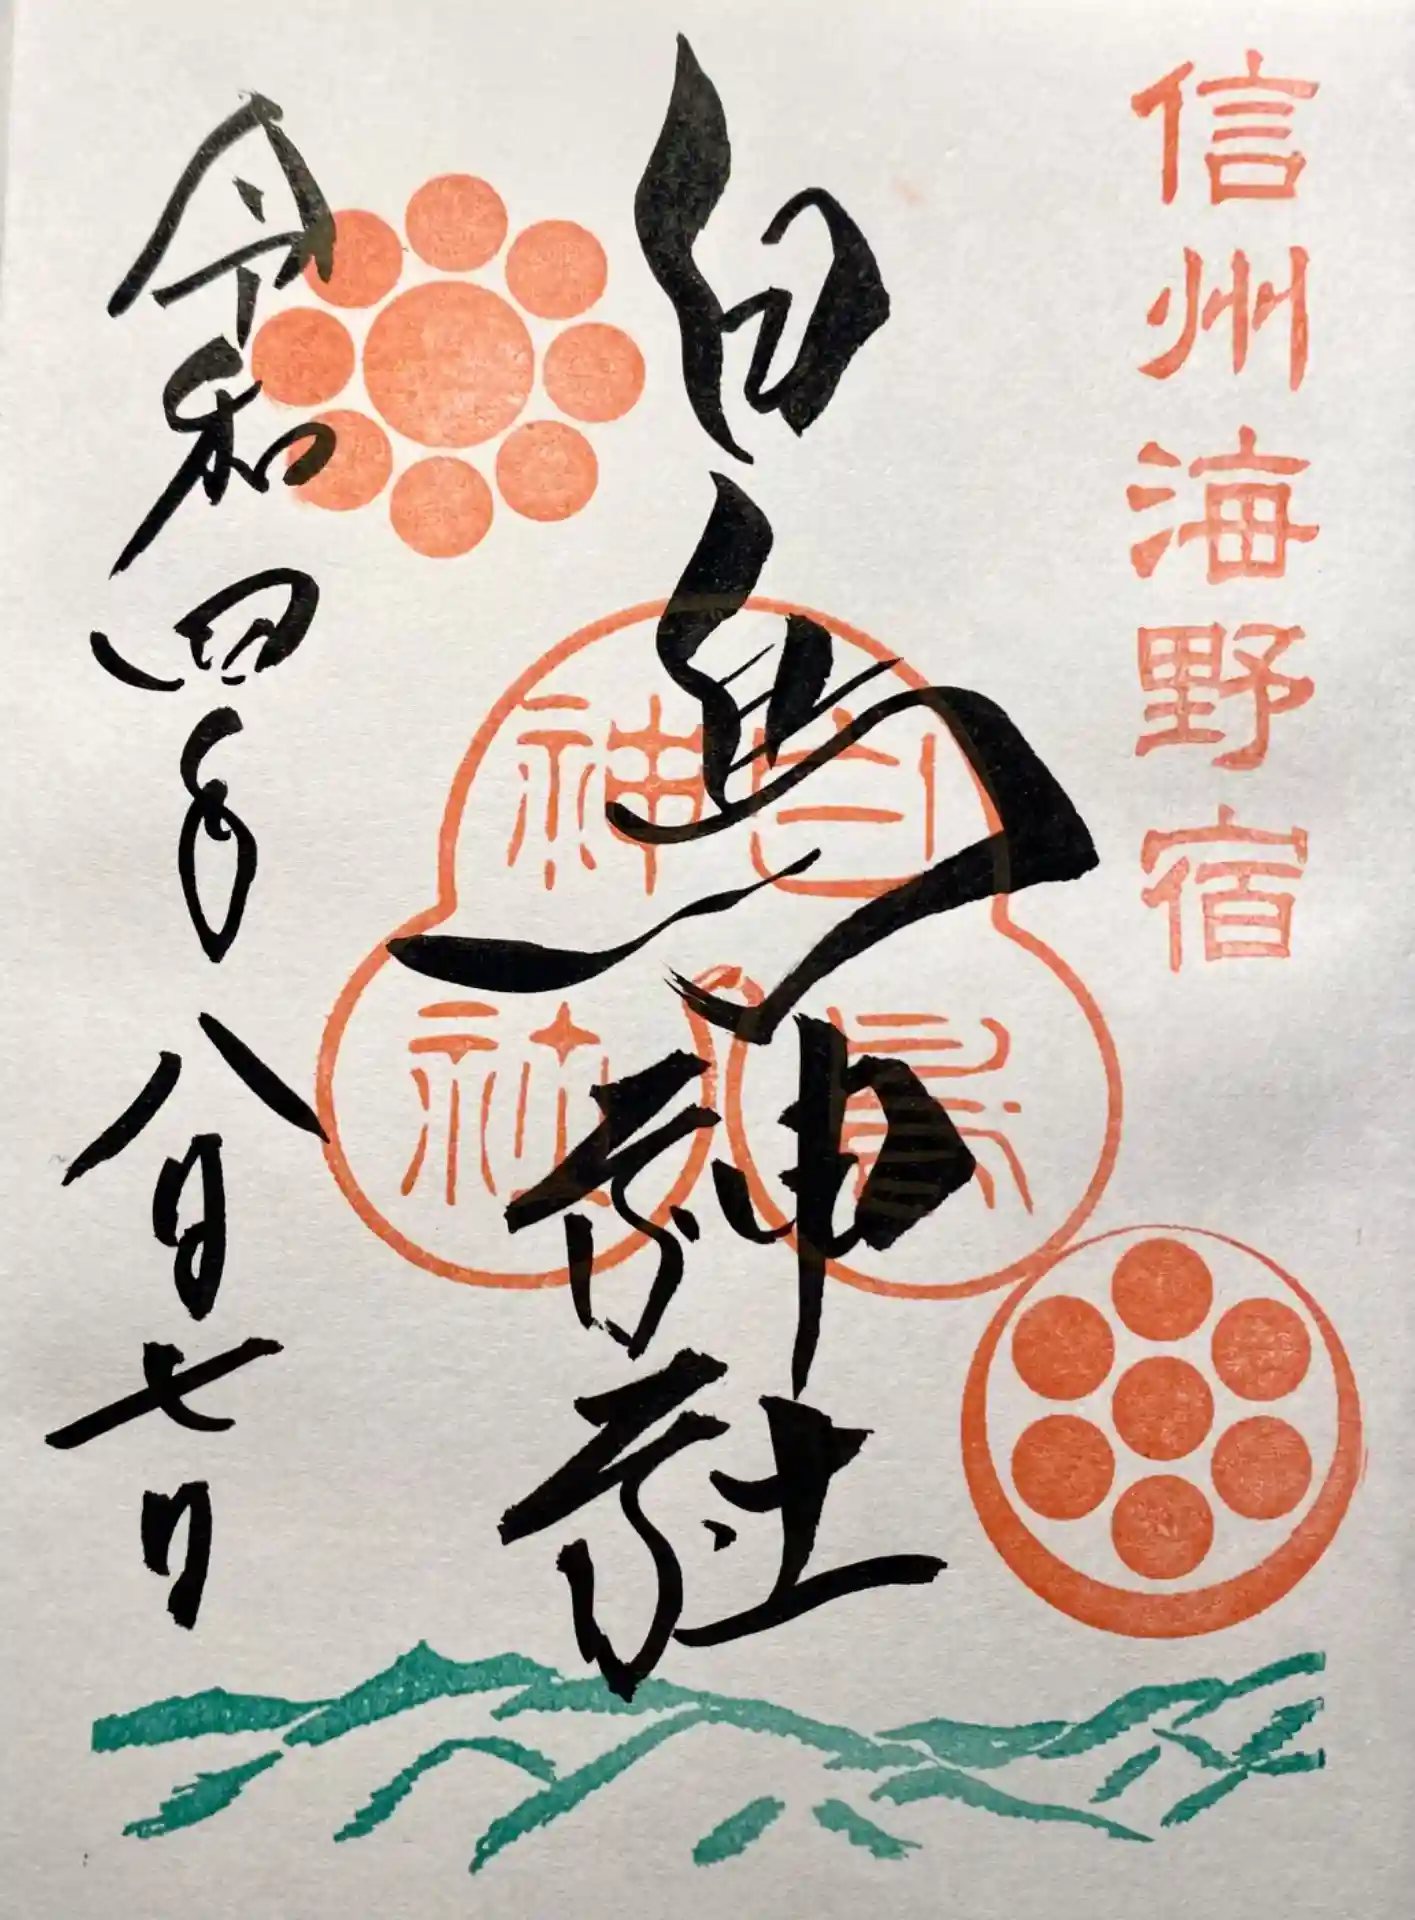 信州海野宿
白鳥神社
白鳥
神社
令和四年八月七日